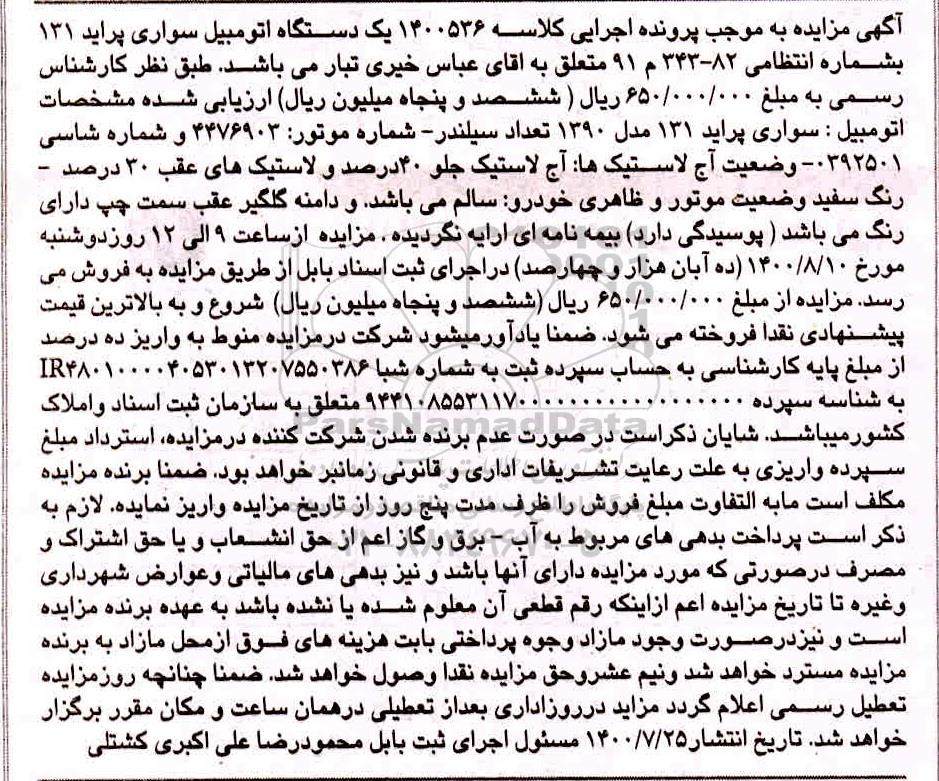 آگهی مزایده به موجب پرونده اجرایی کلاسه ۱۴۰۰۵۳۶ یک دستگاه اتومبیل سواری پراید ۱۳۱
بشماره انتظامی ۸۲-۳۴۳ م ۹۱ متعلق به اقای عباس خیری تبار می باشد. طبق نظر کارشناس
رسمی به مبلغ ۶۵۰/۰۰۰/۰۰۰ ریال ( ششصد و پنجاه میلیون ریال) ارزیابی شده مشخصات
اتومبیل : سواری پراید ۱۳۱ مدل ۱۳۹۰ تعداد سیلندر- شماره موتور: ۴۴۷۶۹۰۳ و شماره شاسی
۰۳۹۲۵۰۱- وضعیت آج لاستیک ها: آج لاستیک جلو ۴۰درصد و لاستیک های عقب ۳۰ درصد -
رنگ سفید وضعیت موتور و ظاهری خودرو: سالم می باشد. و دامنه گلگیر عقب سمت چپ دارای
رنگ می باشد ( پوسیدگی دارد) بیمه نامه ای ارایه نگردیده . مزایده ازساعت ۹ الی ۱۲ روزدوشنبه
مورخ ۱۴۰۰/۸/۱۰ (ده آبان هزار و چهارصد) دراجرای ثبت اسناد بابل از طریق مزایده به فروش می
رسد. مزایده از مبلغ ۶۵۰/۰۰۰/۰۰۰ ریال (ششصد و پنجاه میلیون ریال) شروع و به بالاترین قیمت
پیشنهادی نقدا فروخته می شود. ضمنا یادآورمیشود شرکت درمزایده منوط به واریز ده درصد
از مبلغ پایه کارشناسی به حساب سپرده ثبت به شماره شبا IR۴۸۰۱۰۰۰۰۴۰۵۳۰۱۳۲۰۷۵۵۰۳۸۶
به شناسه سپرده ۹۴۴۱۰۸۵۵۳۱۱۷۰۰۰۰۰۰۰۰۰۰۰۰۰۰۰۰۰۰ متعلق به سازمان ثبت اسناد واملاک
کشورمیباشد. شایان ذکراست در صورت عدم برنده شدن شرکت کننده درمزایده، استرداد مبلغ
سپرده واریزی به علت رعایت تشریفات اداری و قانونی زمانبر خواهد بود. ضمنا برنده مزایده
مکلف است مابه التفاوت مبلغ فروش را ظرف مدت پنج روز از تاریخ مزایده واریز نماید. لازم به
ذکر است پرداخت بدهی های مربوط به آب - برق و گاز اعم از حق انشعاب و یا حق اشتراک و
مصرف درصورتی که مورد مزایده دارای آنها باشد و نیز بدهی های مالیاتی وعوارض شهرداری
وغیره تا تاریخ مزایده اعم ازاینکه رقم قطعی آن معلوم شده یا نشده باشد به عهده برنده مزایده
است و نیزدرصورت وجود مازاد وجوه پرداختی بابت هزینه های فوق ازمحل مازاد به برنده
مزایده مسترد خواهد شد ونیم عشروحق مزایده نقدا وصول خواهد شد. ضمنا چنانچه روزمزایده
تعطیل رسمی اعلام گردد مزاید درروزاداری بعداز تعطیلی درهمان ساعت و مکان مقرر برگزار
خواهد شد. تاریخ انتشار۱۴۰۰/۷/۲۵ مسئول اجرای ثبت بابل محمودرضا علی اکبری کشتلی
ParsNamadData